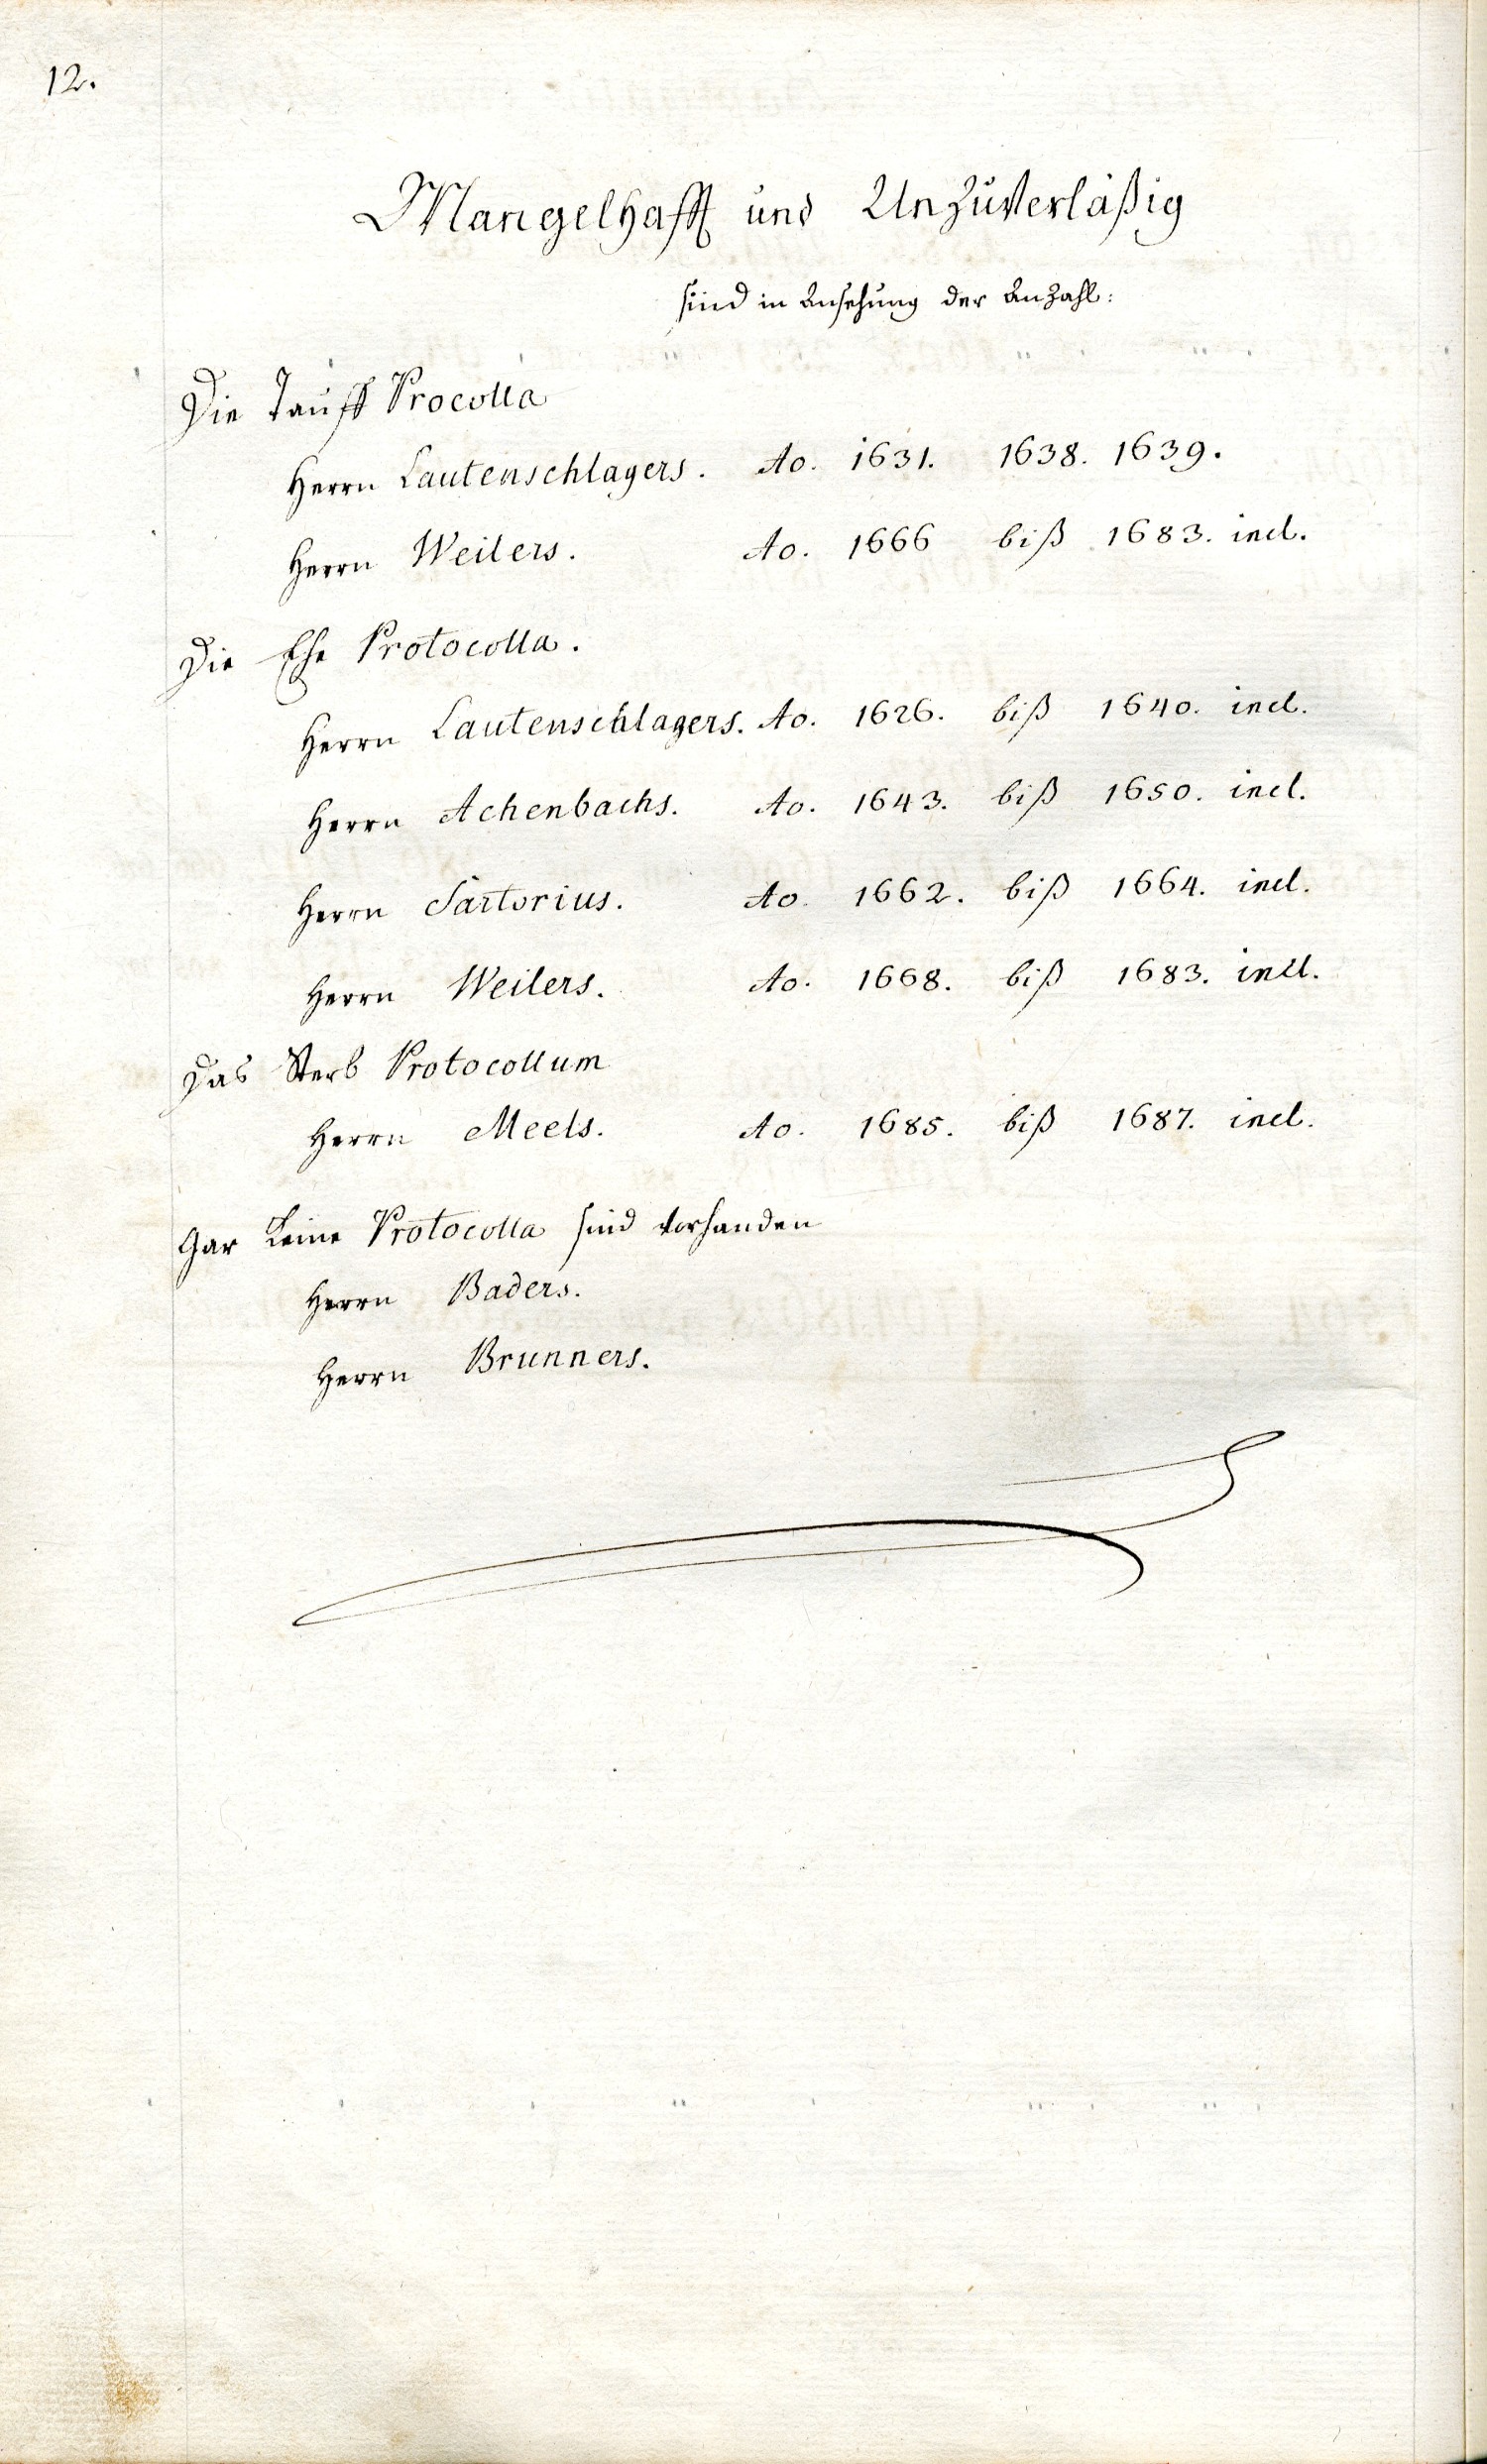 12.
Mangelhafft und Unzuverläßig
sind in Ansehung der Anzahl:
Die Tauff Procolla
Herrn Lautenschlagers. Ao. 1631. 1638. 1639.
Herrn Weilers. Ao. 1666 biß 1683. incl.
Die Ehe Protocolla.
Herrn Lautenschlagers. Ao. 1626. biß 1640. incl.
Herrn Achenbachs. Ao. 1643. biß 1650. incl.
Herrn Sartorius. Ao. 1662. biß 1664. incl.
Herrn Weilers. Ao. 1668. biß 1683. incl.
Das Sterb Protocollum
Herrn Meels. Ao. 1685. biß 1687. incl.
Gar keine Protocolla sind vorhanden
Herrn Baders.
Herrn Brunners.